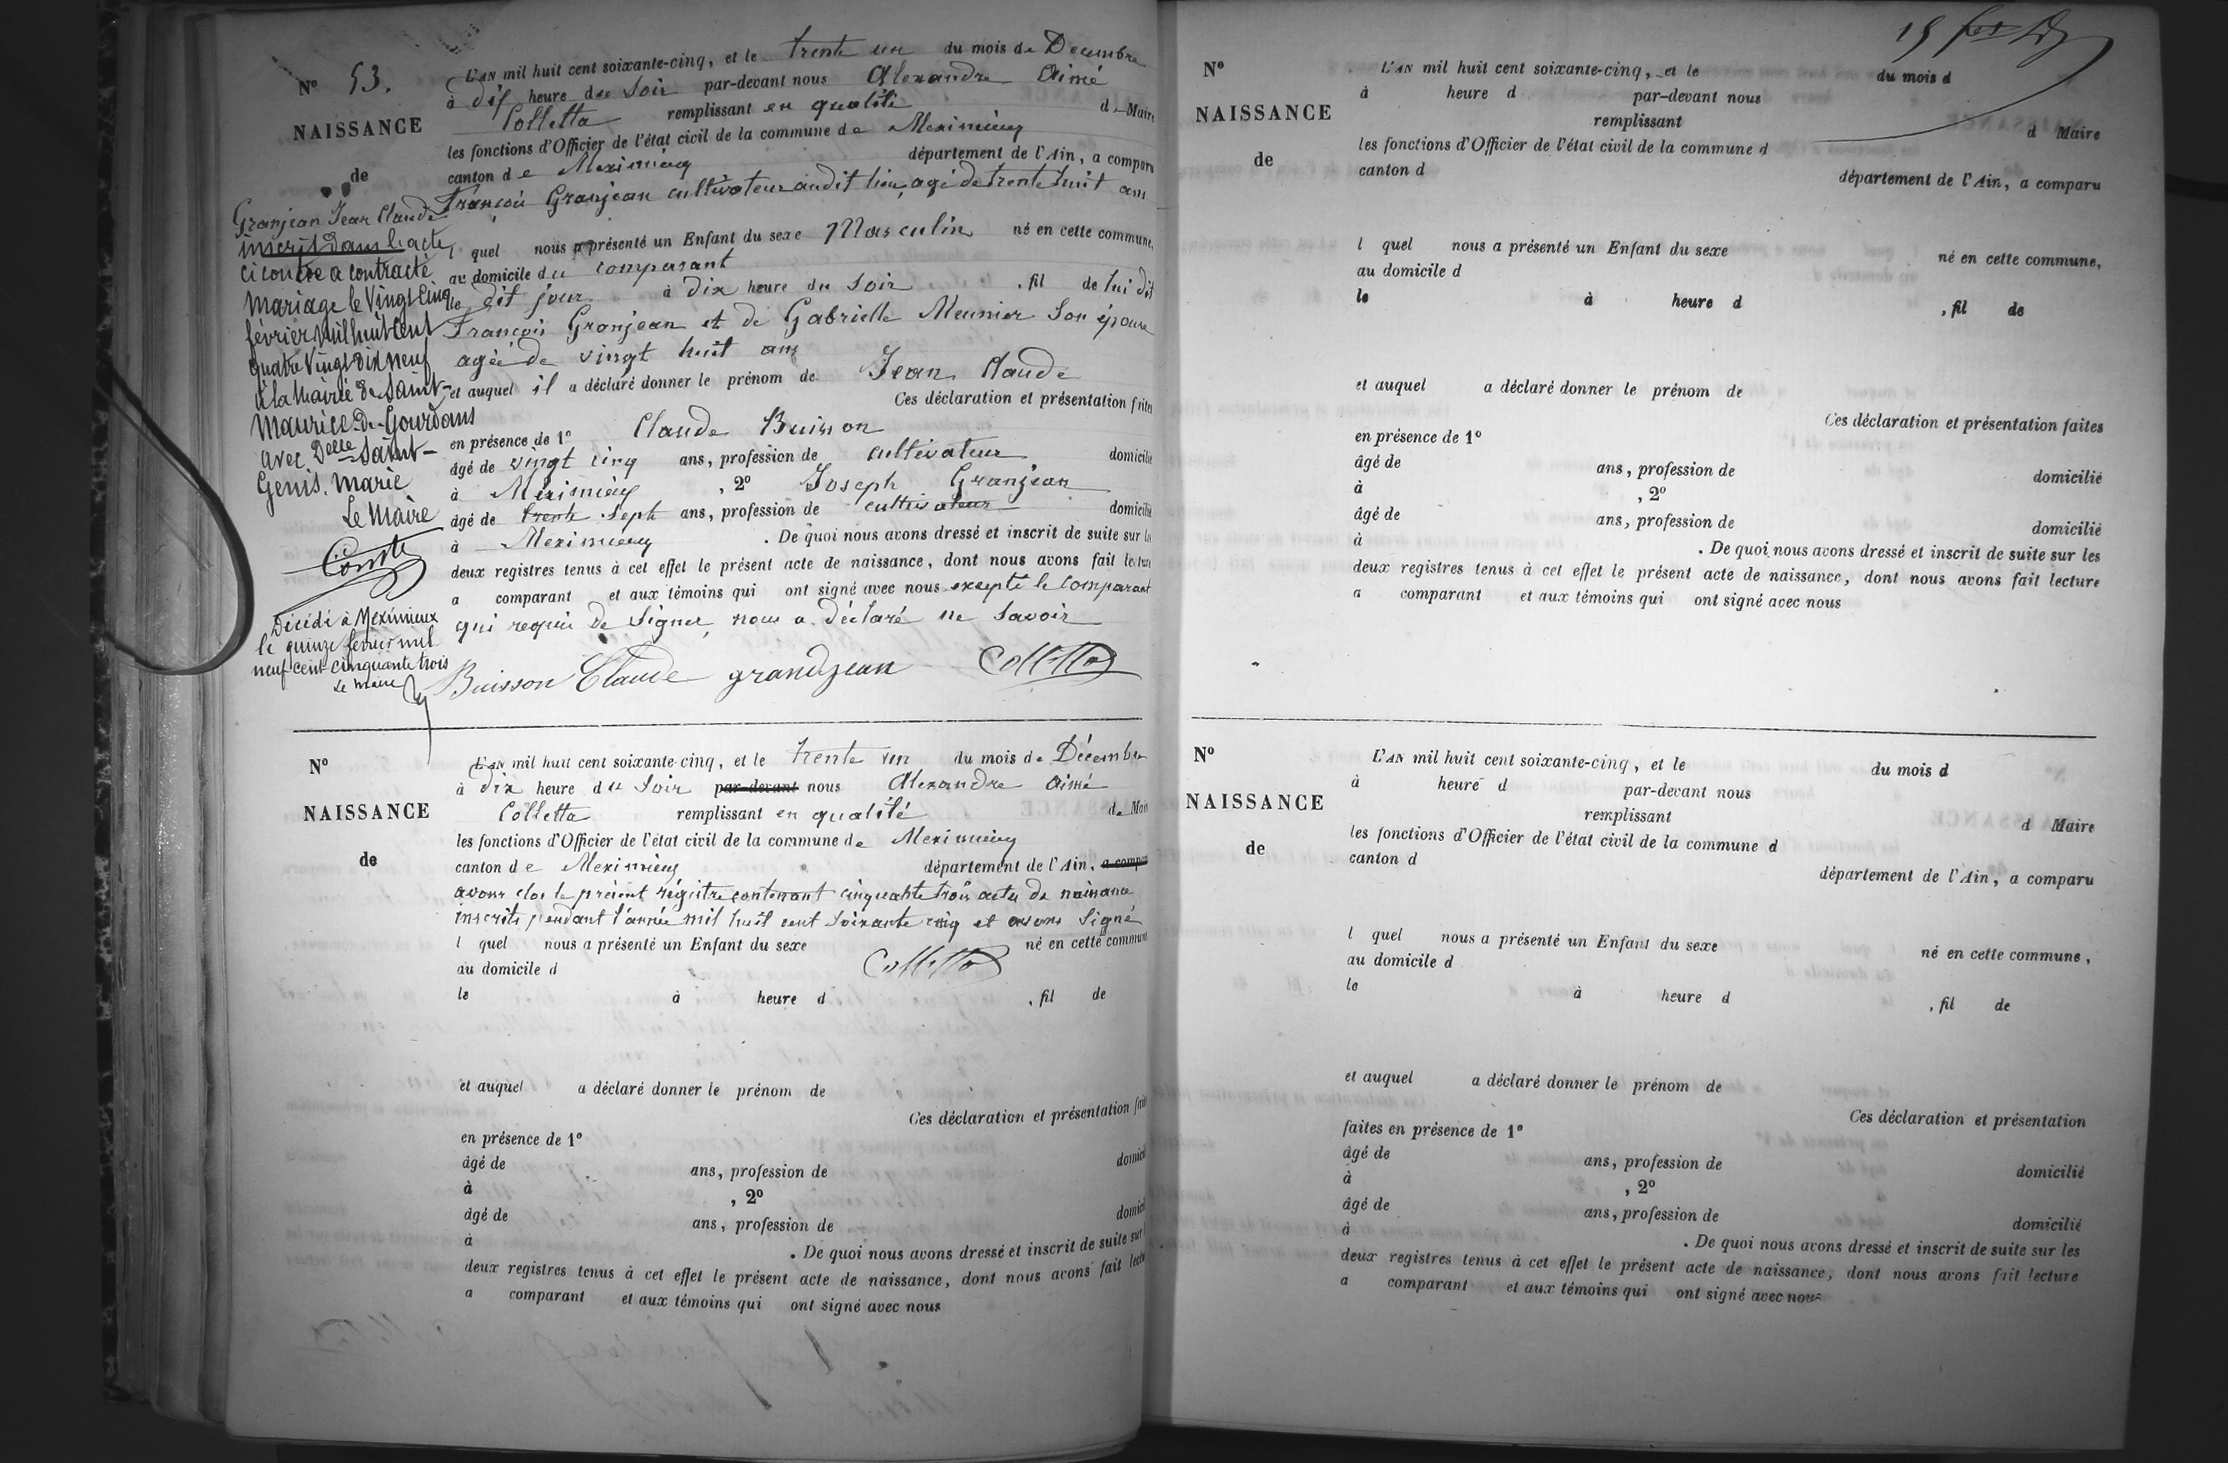 N° 53.
NAISSANCE
de
Granjean Jean Claude
inscrit dans l'acte
ci contre a contracté
mariage le vingt cinq
février mil huit cent
quatre vingt dix neuf
à la mairie de Saint-
Maurice-de-Gourdans
avec Delle Saint-
Genis. Marie
Le Maire
Décédé à Meximieux
le quinze février mil
neuf cent cinquante trois
Le Maire
L'AN mil huit cent soixante-cinq, et le trente un du mois de Decembre
à dix heure du Soir par-devant nous Alexandre Aimé
Colletta remplissant en qualité de Maire
les fonctions d'Officier de l'état civil de la commune de Meximieux
canton de Meximieux département de l'Ain, a comparu
François Granjean cultivateur audit lieu, agé de trente huit ans
l quel nous a présenté un Enfant du sexe Masculin né en cette commune,
au domicile du comparant
le dit jour à dix heure du Soir , fil de lui dit
François Granjean et de Gabrielle Meunier Son épouse
agée de vingt huit ans
et auquel il a déclaré donner le prénom de Jean Claude
Ces déclaration et présentation faites
en présence de 1° Claude Buisson
âgé de vingt cinq ans, profession de cultivateur domicilié
à Meximieux , 2° Joseph Granjean
âgé de trente Sept ans, profession de cultivateur domicilié
à Meximieux . De quoi nous avons dressé et inscrit de suite sur les
deux registres tenus à cet effet le présent acte de naissance, dont nous avons fait lecture
a comparant et aux témoins qui ont signé avec nous excepté le Comparant
qui requis de Signer, nous a déclaré ne Savoir
Buisson Claude grandjean Colletta
N°
NAISSANCE
de
L'AN mil huit cent soixante-cinq, et le trente un du mois de Décembre
à dix heure du Soir par-devant nous Alexandre Aimé
Colletta remplissant en qualité de Maire
les fonctions d'Officier de l'état civil de la commune de Meximieux
canton de Meximieux département de l'Ain, a comparu
avons clos le présent régistre contenant cinquante trois actes de naissance
inscrits pendant l'année mil huit cent soixante cinq et avons Signé
l quel nous a présenté un Enfant du sexe né en cette commune
au domicile d Colletta
le à heure d , fil de
et auquel a déclaré donner le prénom de
Ces déclaration et présentation faites
en présence de 1°
âgé de ans, profession de domicilié
à , 2°
âgé de ans, profession de domicilié
à . De quoi nous avons dressé et inscrit de suite sur l
deux registres tenus à cet effet le présent acte de naissance, dont nous avons fait lecture
a comparant et aux témoins qui ont signé avec nous
N°
NAISSANCE
de
L'AN mil huit cent soixante-cinq, et le du mois d
à heure d par-devant nous
remplissant d Maire
les fonctions d'Officier de l'état civil de la commune d
canton d département de l'Ain, a comparu
l quel nous a présenté un Enfant du sexe né en cette commune,
au domicile d
le à heure d , fil de
et auquel a déclaré donner le prénom de
Ces déclaration et présentation faites
en présence de 1°
âgé de ans, profession de domicilié
à , 2°
âgé de ans, profession de domicilié
à . De quoi nous avons dressé et inscrit de suite sur les
deux registres tenus à cet effet le présent acte de naissance, dont nous avons fait lecture
a comparant et aux témoins qui ont signé avec nous
N°
NAISSANCE
de
L'AN mil huit cent soixante-cinq, et le du mois d
à heure d par-devant nous
remplissant d Maire
les fonctions d'Officier de l'état civil de la commune d
canton d département de l'Ain, a comparu
l quel nous a présenté un Enfant du sexe né en cette commune,
au domicile d
le à heure d , fil de
et auquel a déclaré donner le prénom de
Ces déclaration et présentation
faites en présence de 1°
âgé de ans, profession de domicilié
à , 2°
âgé de ans, profession de domicilié
à . De quoi nous avons dressé et inscrit de suite sur les
deux registres tenus à cet effet le présent acte de naissance, dont nous avons fait lecture
a comparant et aux témoins qui ont signé avec nous